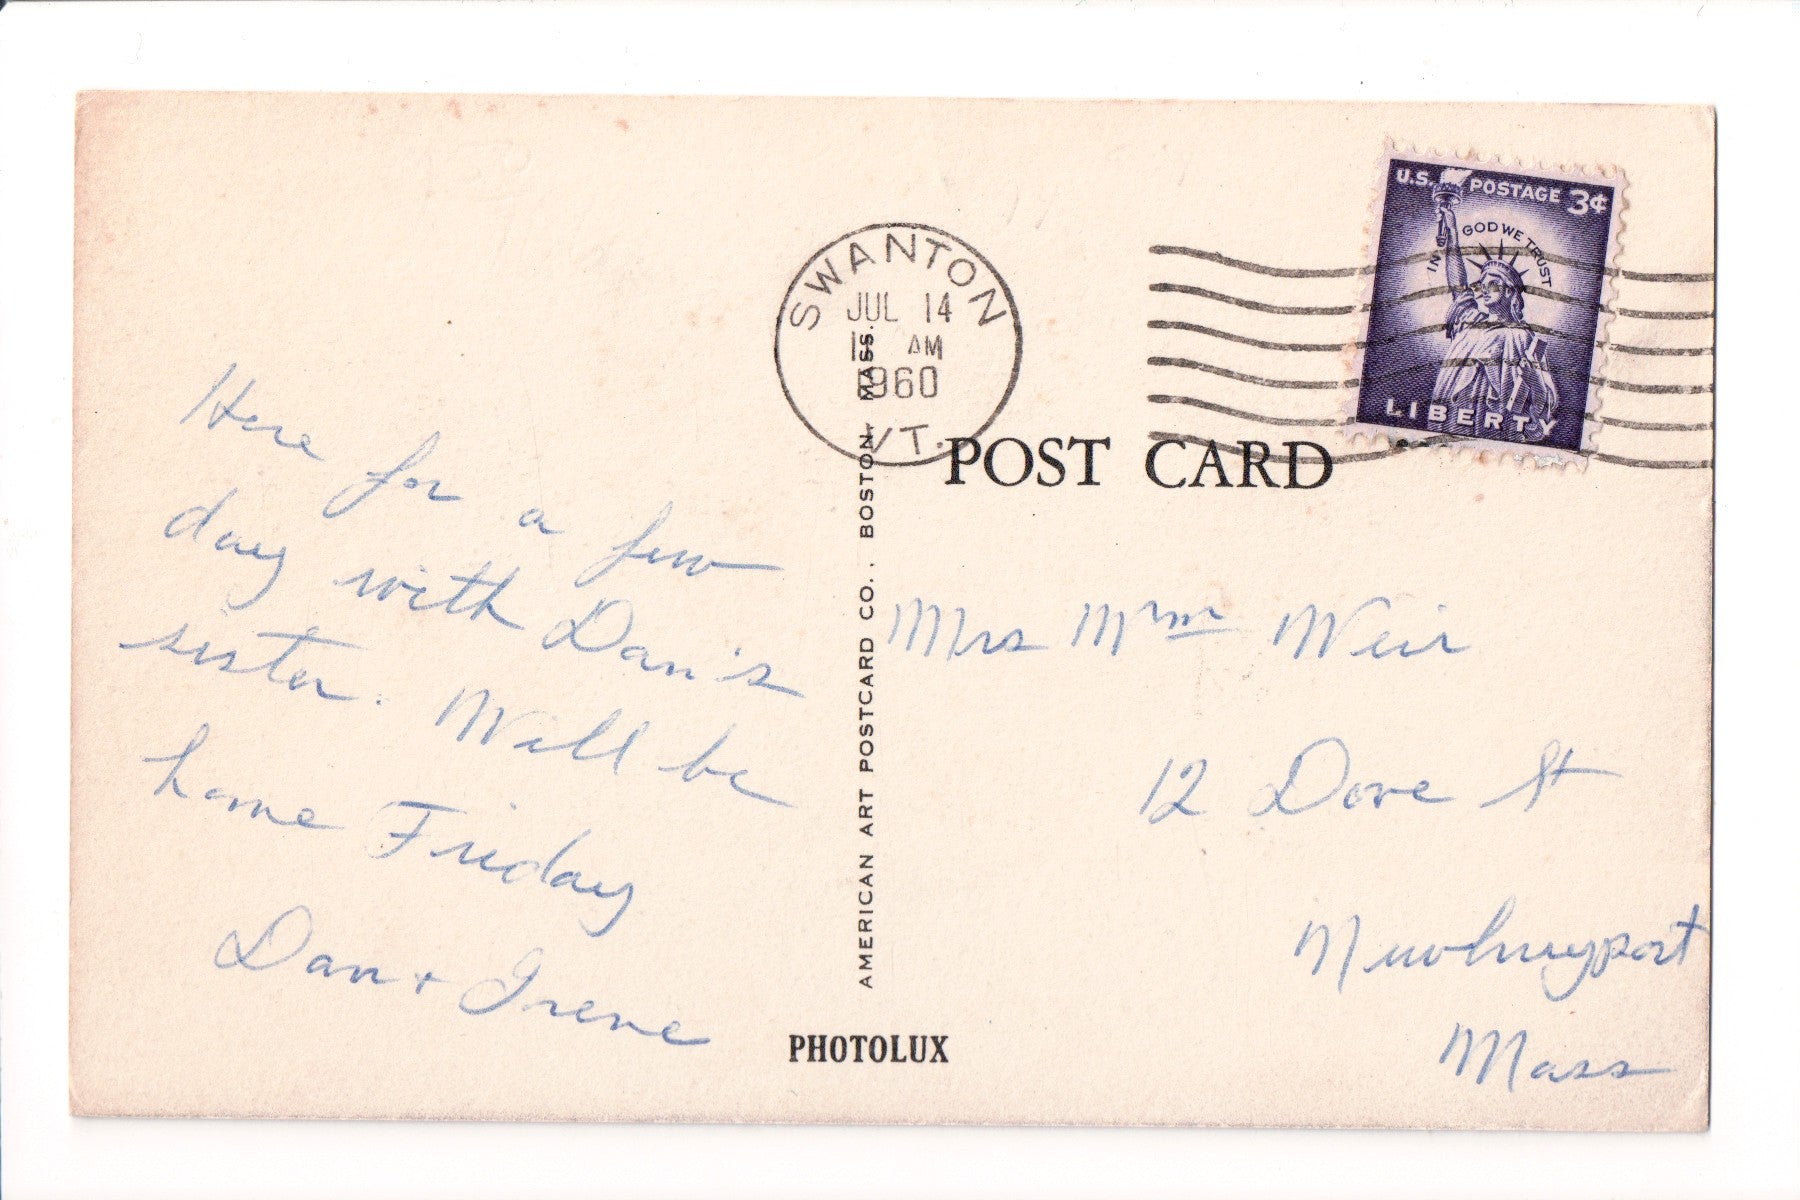 Here for a few
day with Dan's
sister. Will be
home Friday
Dan + Irene
SWANTON
JUL 14
AM
1960
VT.
U.S. POSTAGE 3¢
IN GOD WE TRUST
LIBERTY
POST CARD
AMERICAN ART POSTCARD CO., BOSTON, MASS.
Mrs Wm Weir
12 Dove St
Newburyport
Mass
PHOTOLUX